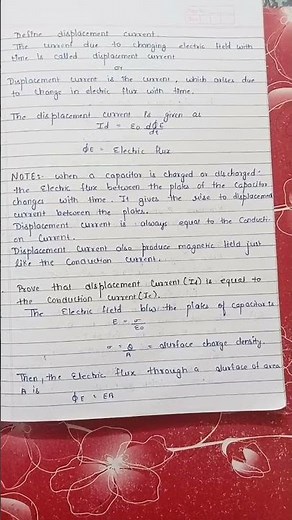 Define displacement current.
The current due to changing electric field with
time is called displacement current
or
Displacement current is the current, which arises due
to change in electric flux with time.
The displacement current is given as
Id = ε0 dϕE/dt
ϕE = Electric flux
NOTE:- When a capacitor is charged or discharged.
the Electric flux between the plates of the Capacitor
changes with time. It gives the rise to displacement
current between the plates.
Displacement current is always equal to the Conducti-
on Current.
Displacement Current also produce magnetic field just
like the Conduction current.
Prove that displacement Current (Id) is equal to
the Conduction current (Ic).
The Electric field b/w the plates of capacitor is
E = σ/ε0
σ = Q/A = surface charge density.
Then, the Electric flux through a surface of area
A is
ϕE = EA